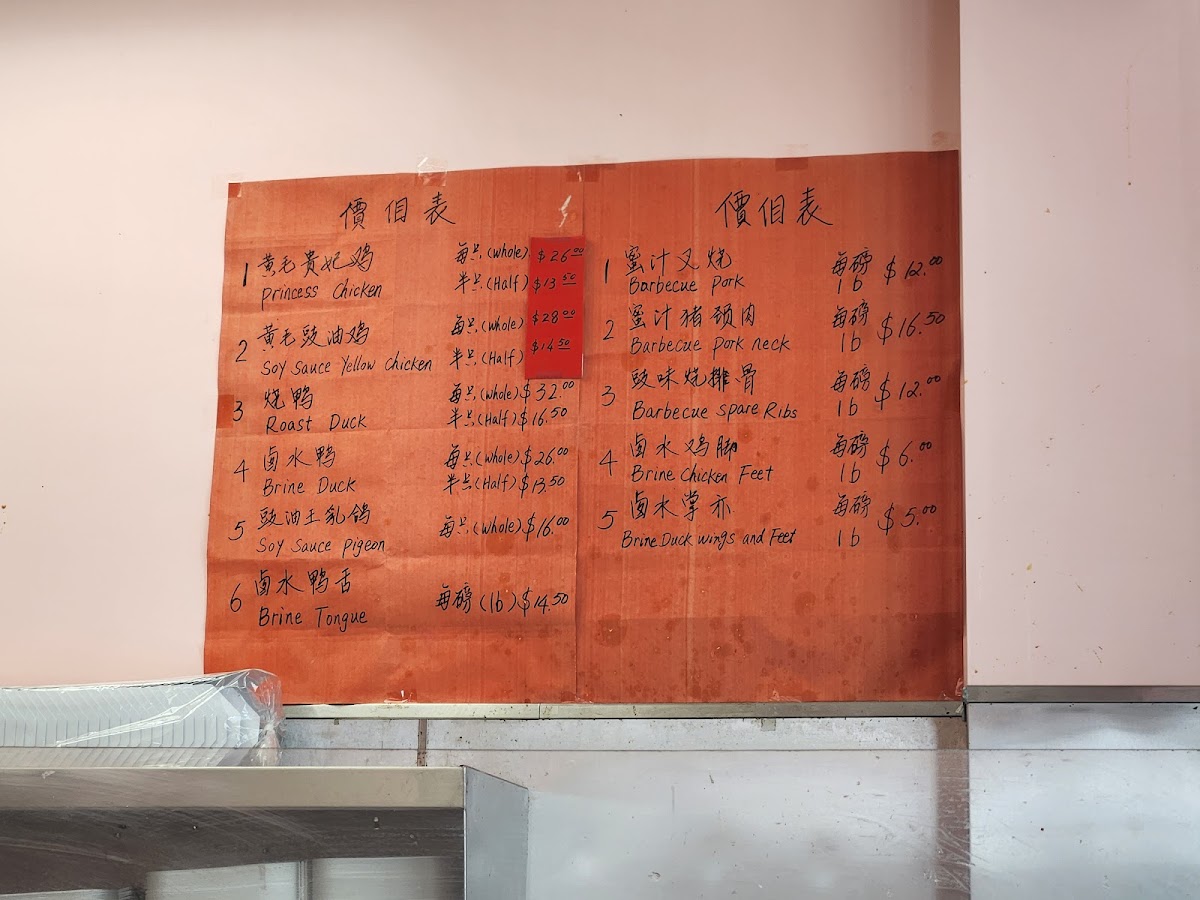 價相表
1 黄毛贵妃鸡 每只(whole) $26.00
princess Chicken 半只(Half) $13.50
2 黄毛豉油鸡 每只(whole) $28.00
Soy Sauce Yellow Chicken 半只(Half) $14.50
3 烧鸭 每只(whole) $32.00
Roast Duck 半只(Half) $16.50
4 卤水鸭 每只(whole) $26.00
Brine Duck 半只(Half) $13.50
5 豉油王乳鸽 每只(whole) $16.00
Soy Sauce pigeon
6 卤水鸭舌 每磅(lb) $14.50
Brine Tongue
價相表
1 蜜汁叉烧 每磅 $12.00
Barbecue pork lb
2 蜜汁猪颈肉 每磅 $16.50
Barbecue pork neck lb
3 豉味烧排骨 每磅 $12.00
Barbecue spare Ribs lb
4 卤水鸡脚 每磅 $6.00
Brine Chicken Feet lb
5 卤水掌亦 每磅 $5.00
Brine Duck wings and Feet lb